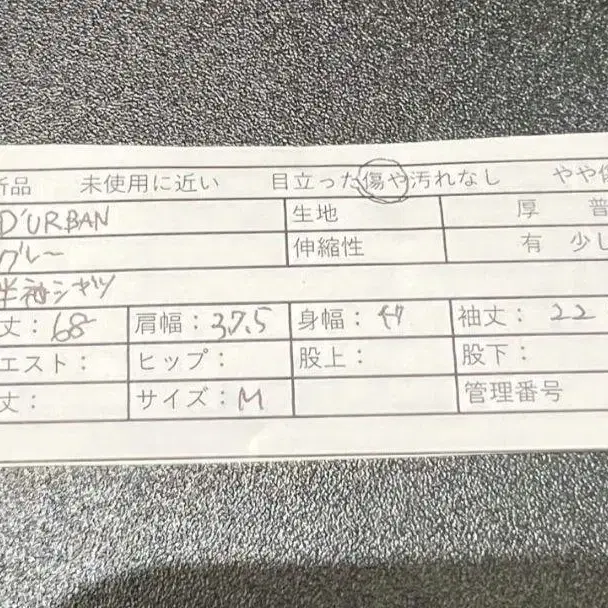 新品 未使用に近い 目立った傷や汚れなし やや傷
D'URBAN 生地 厚 普
グレー 伸縮性 有 少し
半袖シャツ
丈：68 肩幅：37.5 身幅： 袖丈：22
エスト： ヒップ： 股上： 股下：
丈： サイズ：M 管理番号